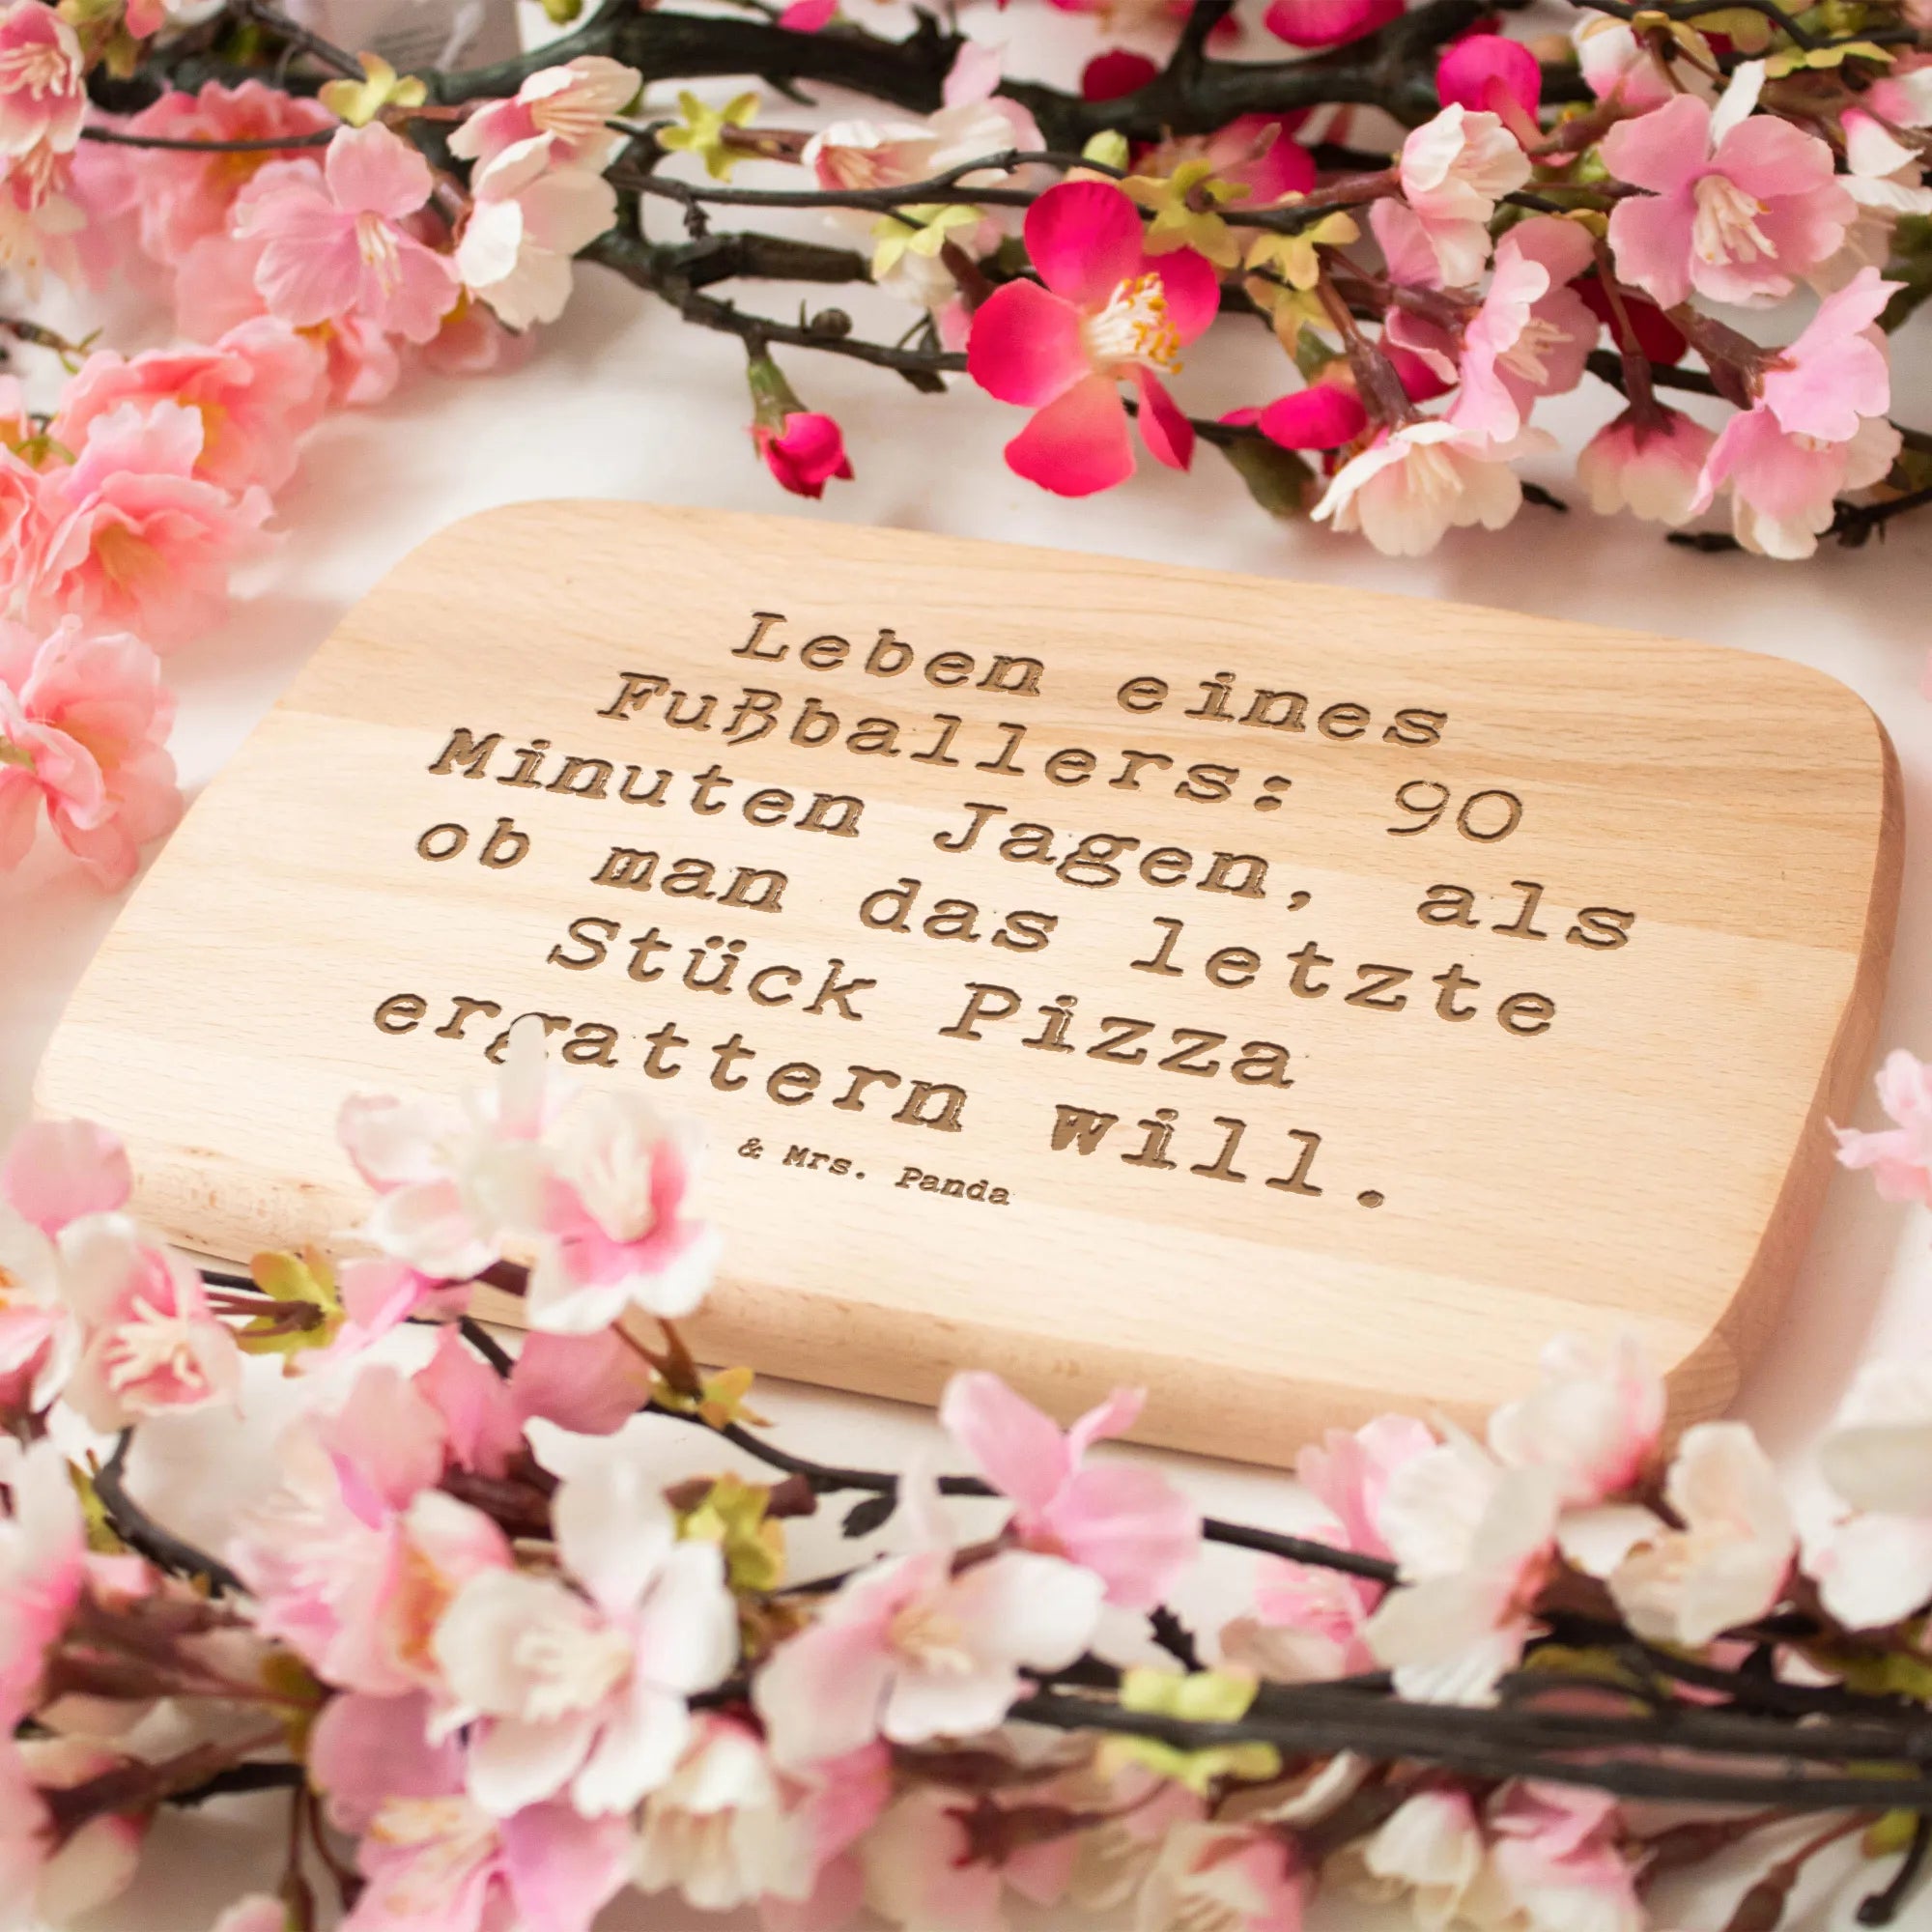 Leben eines
Fußballers: 90
Minuten Jagen, als
ob man das letzte
Stück Pizza
ergattern will.
& Mrs. Panda